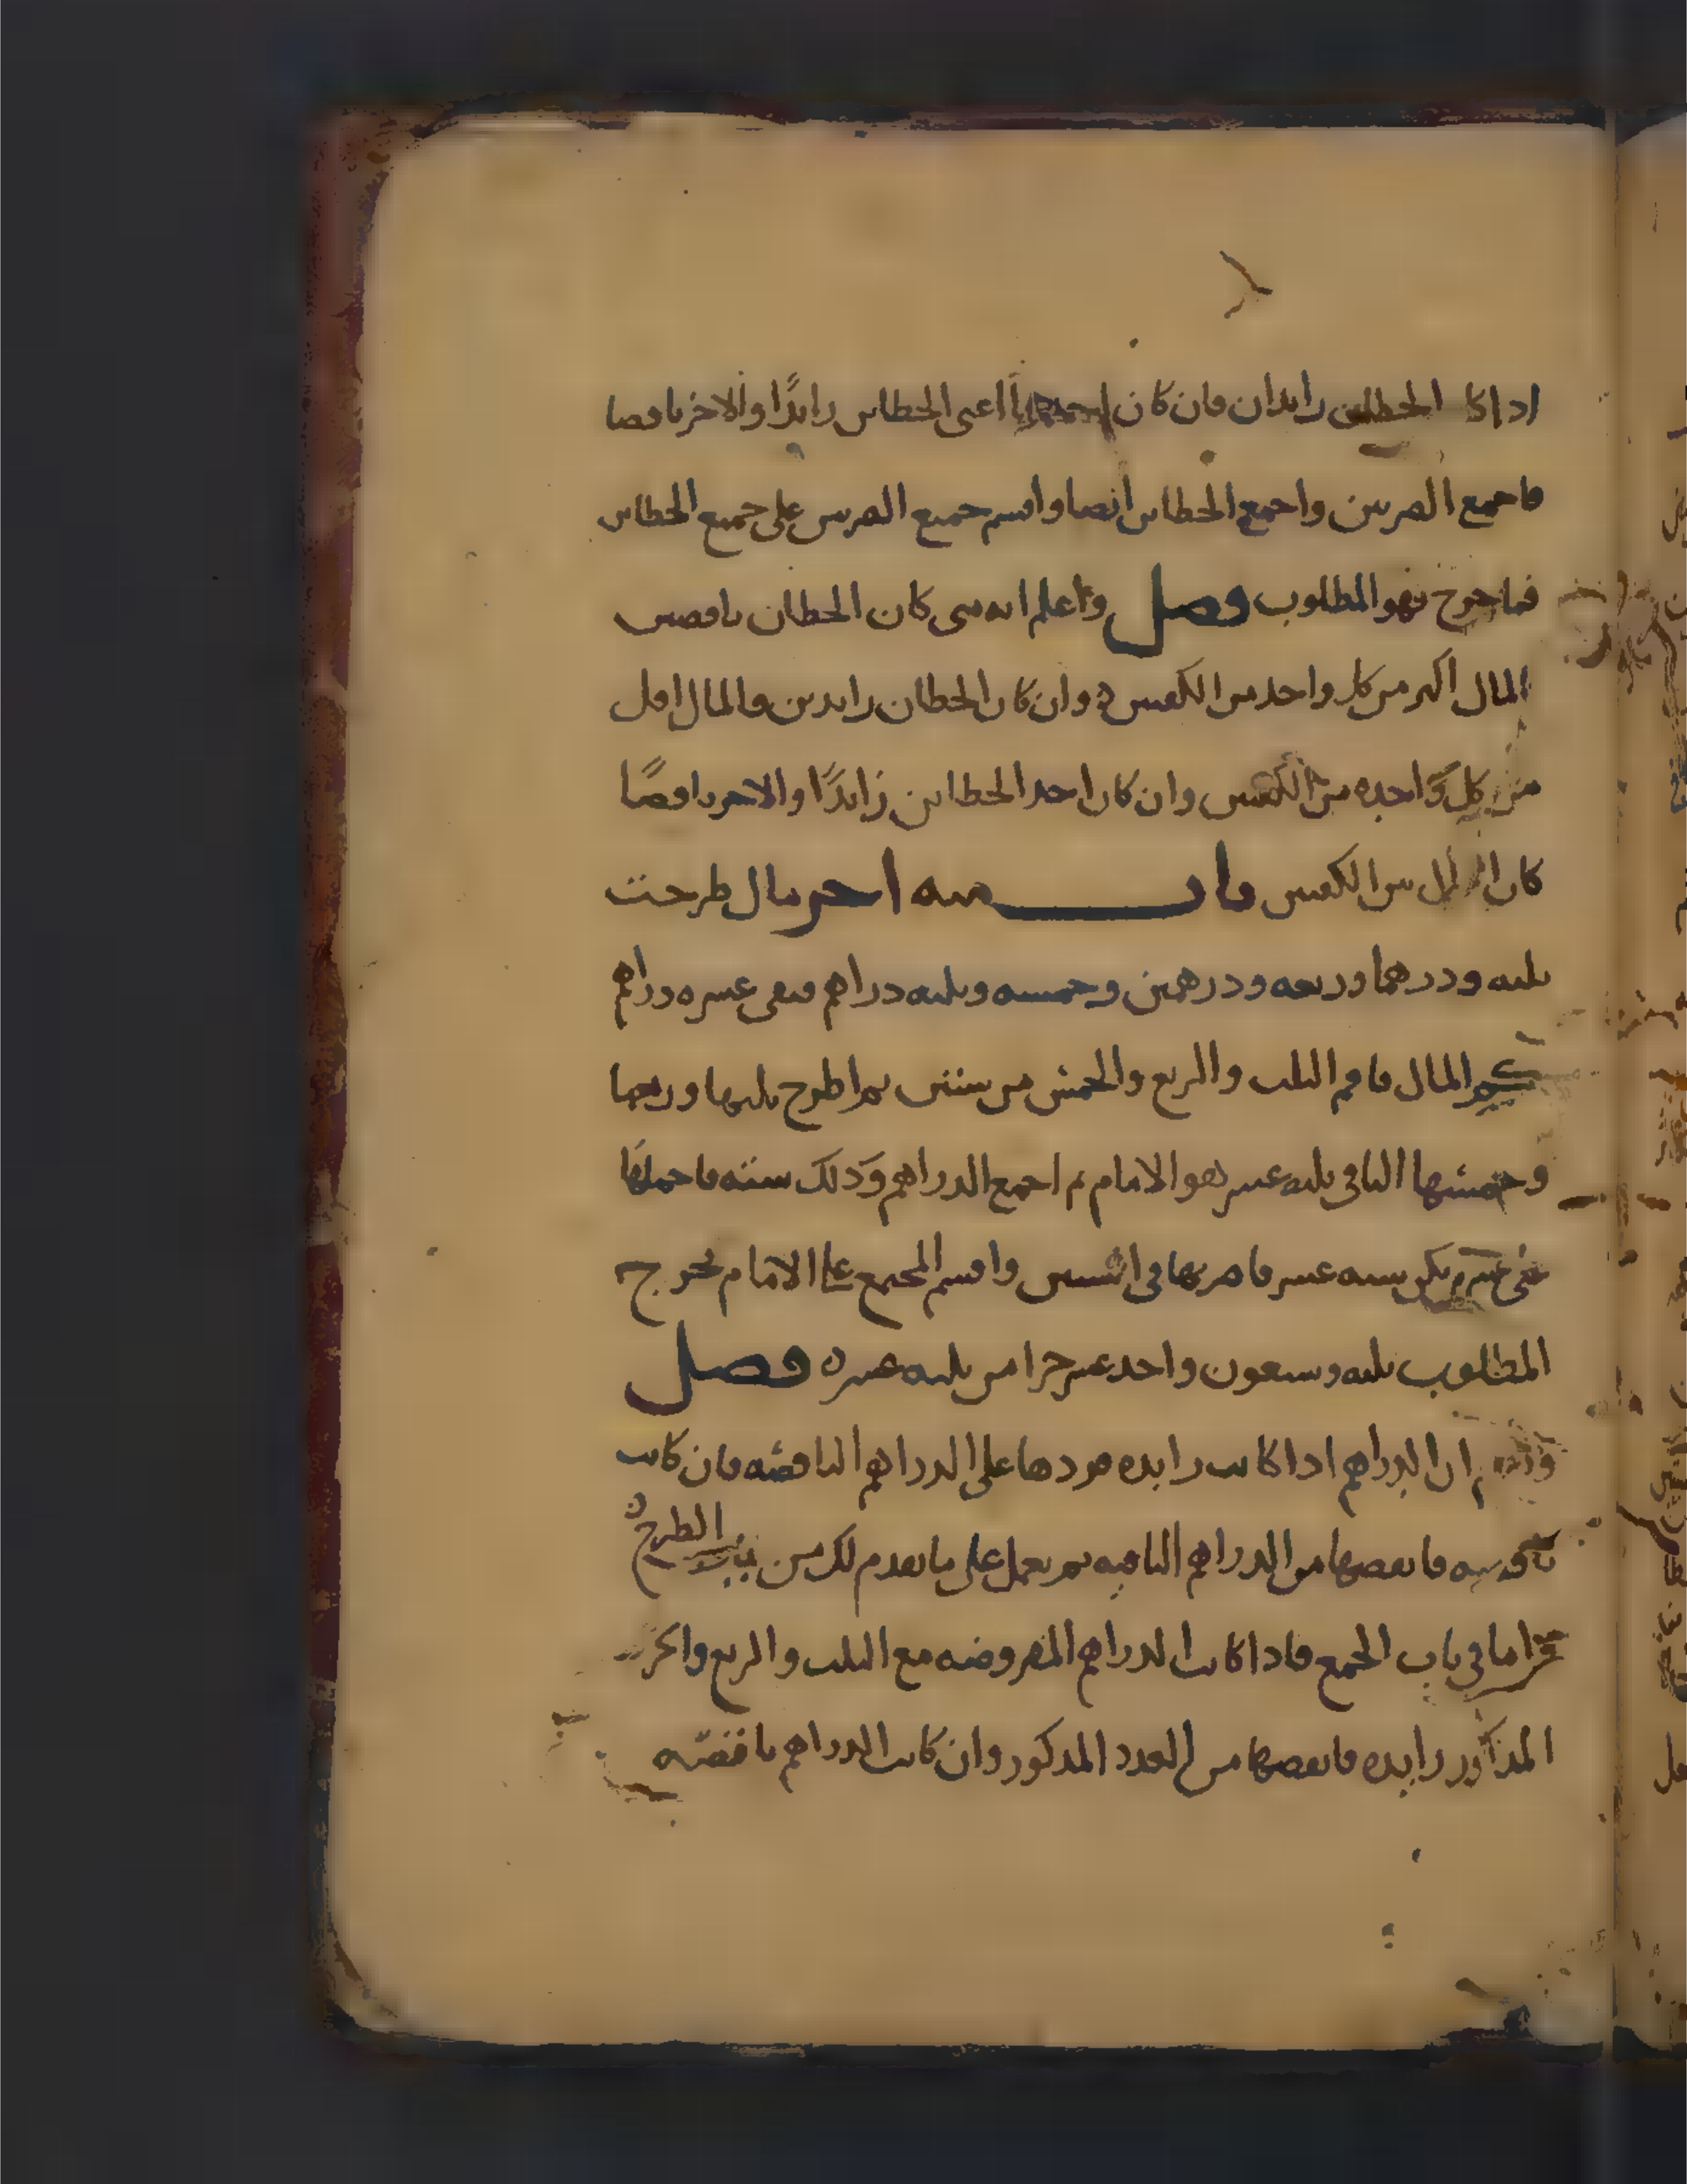 اذا كا الخطاين زايدان فان كان احدهما اعني الخطاين زايدًا والاخر ناقصا
فاجمع الضربين واجمع الخطاين ايضا واقسم جميع الضربين على جميع الخطاين
فما خرج فهو المطلوب فصل واعلم انه متى كان الخطان ناقصين
المال اكبر من كل واحد من الكفتين وان كان الخطان زايدين فالمال اقل
من كل واحده من الكفتين وان كان احد الخطاين زايدًا والاخر ناقصًا
كان المال بين الكفتين باب منه اخر مال طرحت
ثلثه ودرهما وربعه ودرهمين وخمسه وثلثه دراهم فبقى عشره دراهم
كم المال فاقم الثلث والربع والخمس من ستين ثم اطرح ثلثها وربعها
وخمسها الباقي ثلثه عشر هو الامام ثم اجمع الدراهم وذلك سته فاحملها
على عشره يكن سته عشر فاضربها في الستين واقسم المجتمع على الامام يخرج
المطلوب ثلثه وسبعون واحد عشر جزا من ثلثه عشره فصل
ان الدراهم اذا كانت زايده فزدها على الدراهم الناقصه فان كانت
ناقصه فانقصها من الدراهم الباقيه ثم تعمل على ما تقدم لك من باب الطرح
اما في باب الجمع فاذا كانت الدراهم المفروضه مع الثلث والربع والجزر
المذكور زايده فانقصها من العدد المذكور وان كانت الدراهم ناقصه